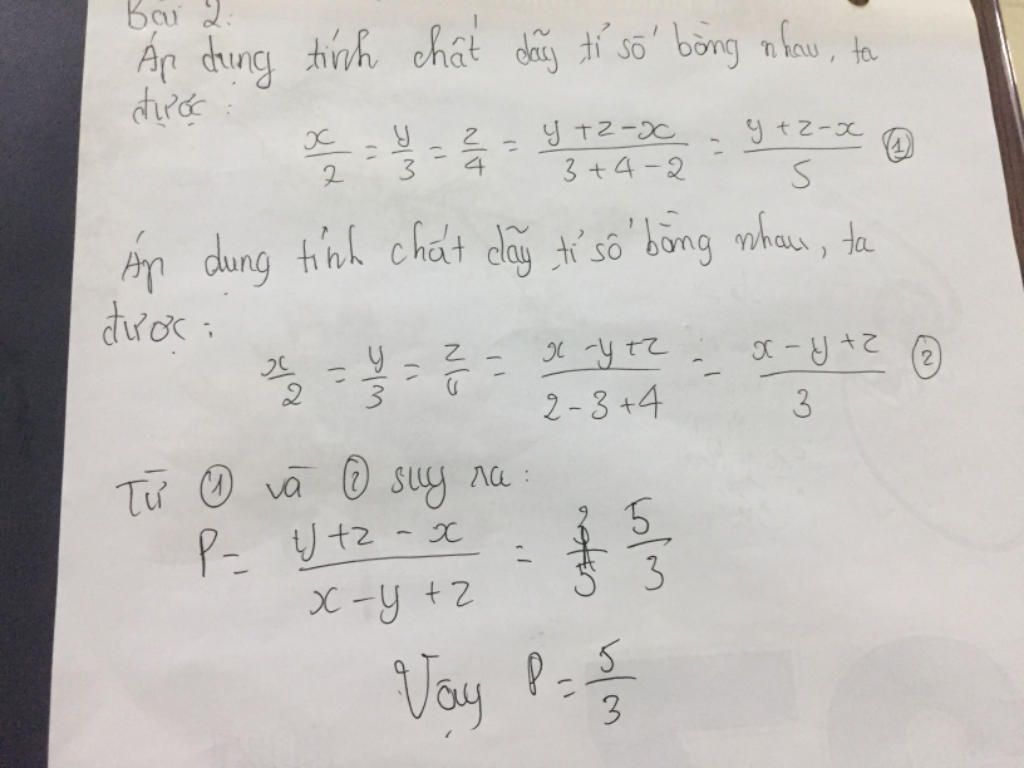 Bài 2:
Áp dụng tính chất dãy tỉ số bằng nhau, ta
được:
x/2 = y/3 = z/4 = (y+z-x)/(3+4-2) = (y+z-x)/5 ①
Áp dụng tính chất dãy tỉ số bằng nhau, ta
được:
x/2 = y/3 = z/4 = (x-y+z)/(2-3+4) = (x-y+z)/3 ②
Từ ① và ② suy ra:
P = (y+z-x)/(x-y+z) = 5/3
Vậy P = 5/3